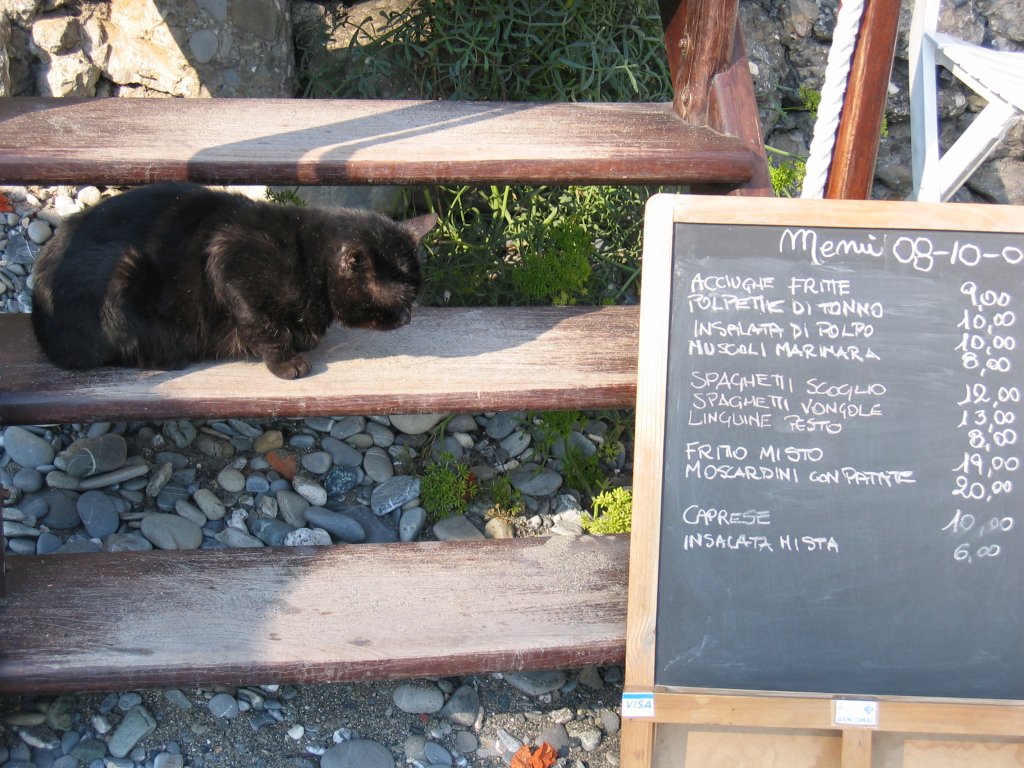 Menù 08-10-0
ACCIUGHE FRITTE 9,00
POLPETTE DI TONNO 10,00
INSALATA DI POLPO 10,00
MUSCOLI MARINARA 8,00
SPAGHETTI SCOGLIO 12,00
SPAGHETTI VONGOLE 13,00
LINGUINE PESTO 8,00
FRITTO MISTO 19,00
MOSCARDINI CON PATATE 20,00
CAPRESE 10,00
INSALATA MISTA 6,00
VISA
BANCOMAT